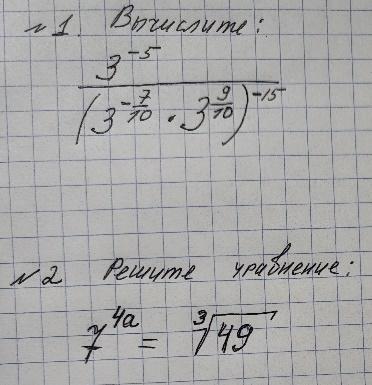 №1. Вычислите:
3^{-5}
(3^{-\frac{7}{10}} · 3^{\frac{9}{10}})^{-15}
№2 Решите уравнение:
7^{4a} = \sqrt[3]{49}